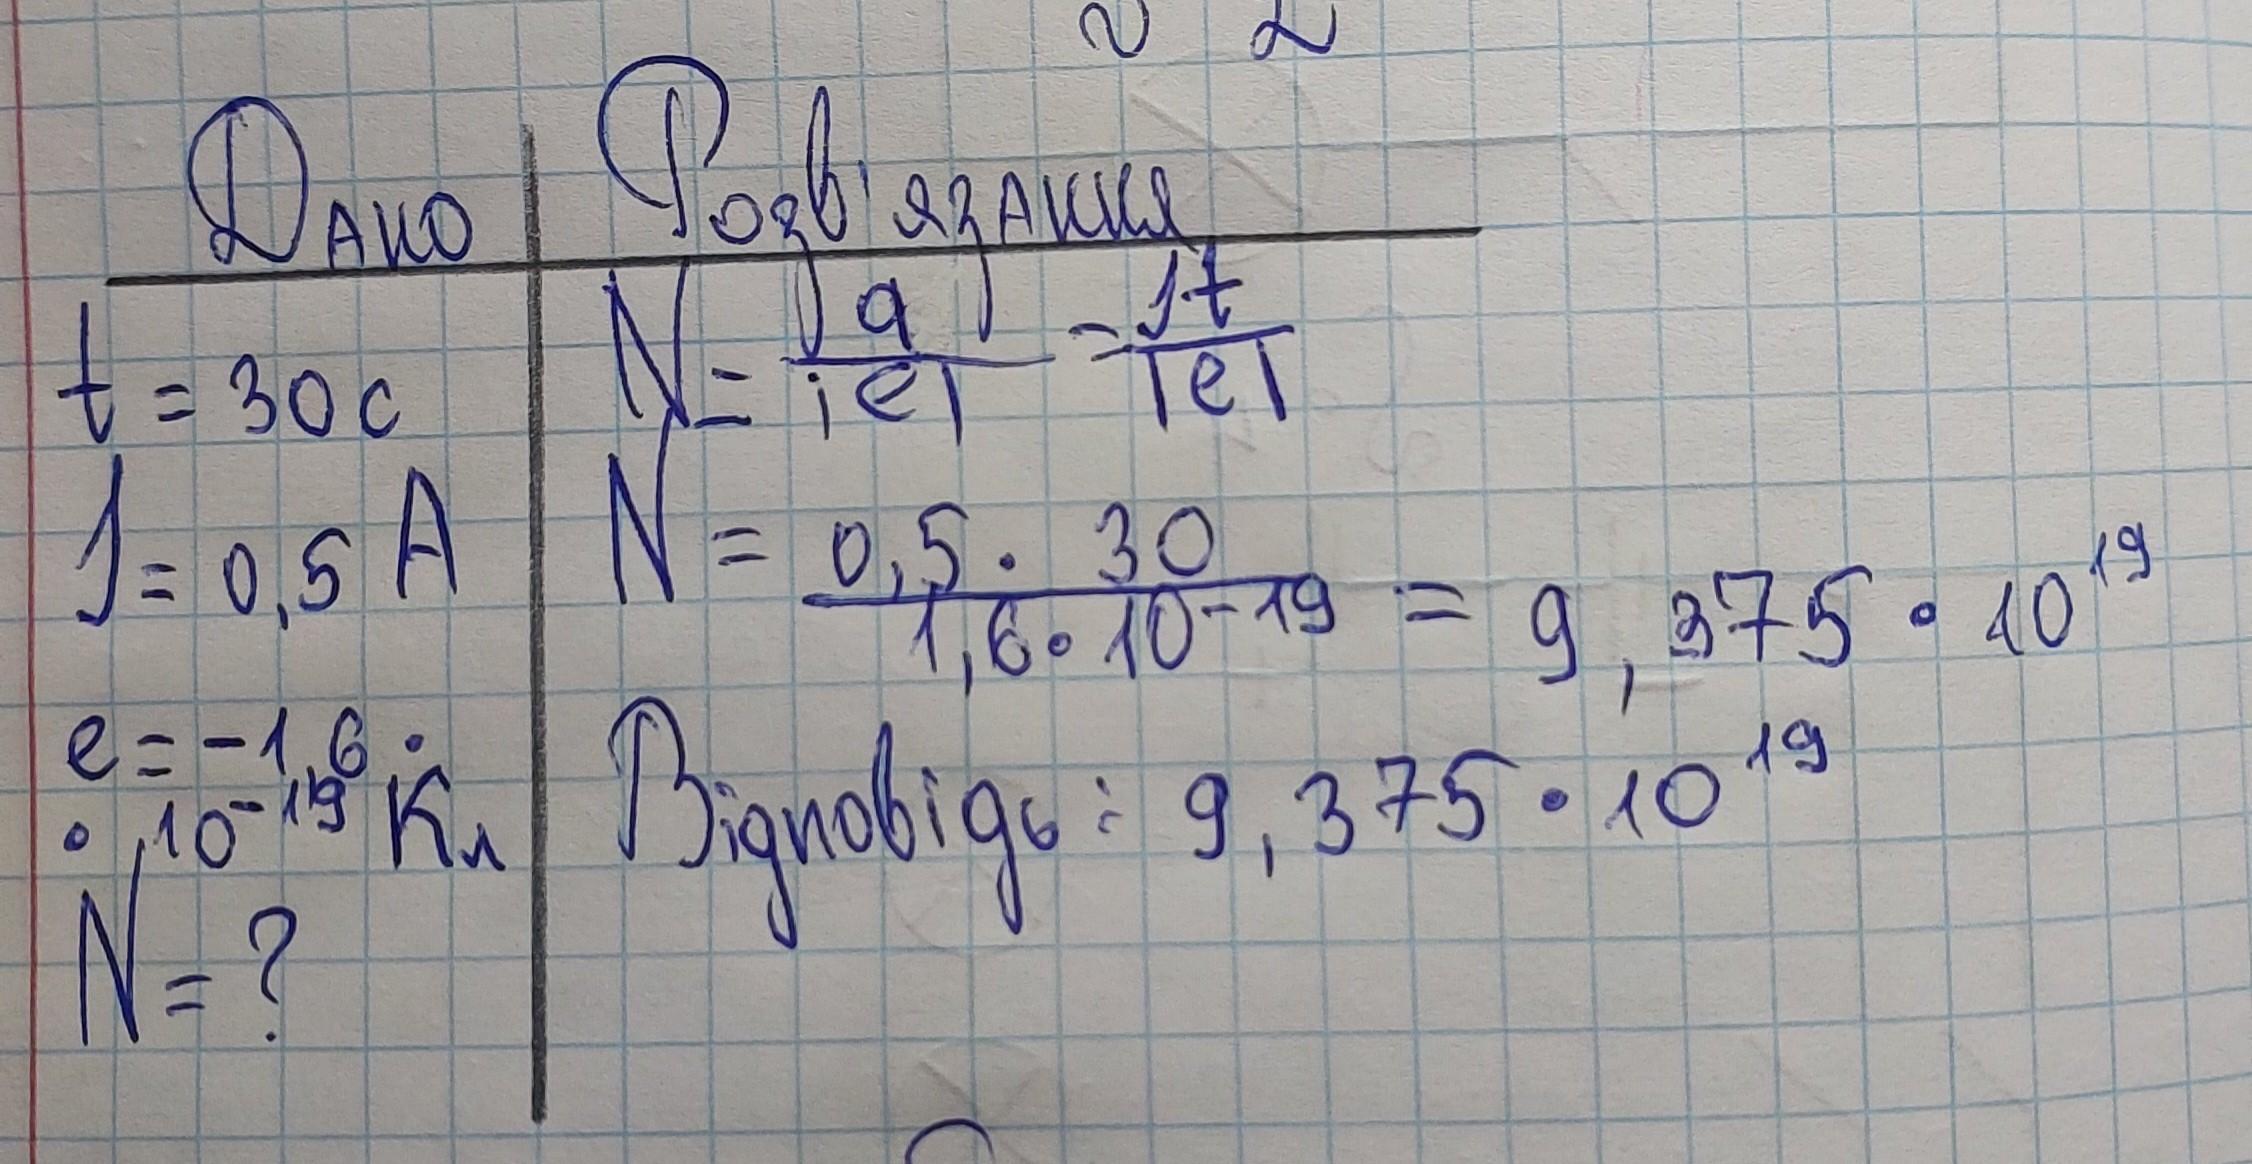 Дано
t = 30 с
I = 0,5 А
e = -1,6 ·
· 10⁻¹⁹ Кл
N = ?
Розв'язання
N = q/|e| = It/|e|
N = 0,5 · 30 / 1,6 · 10⁻¹⁹ = 9,375 · 10¹⁹
Відповідь: 9,375 · 10¹⁹